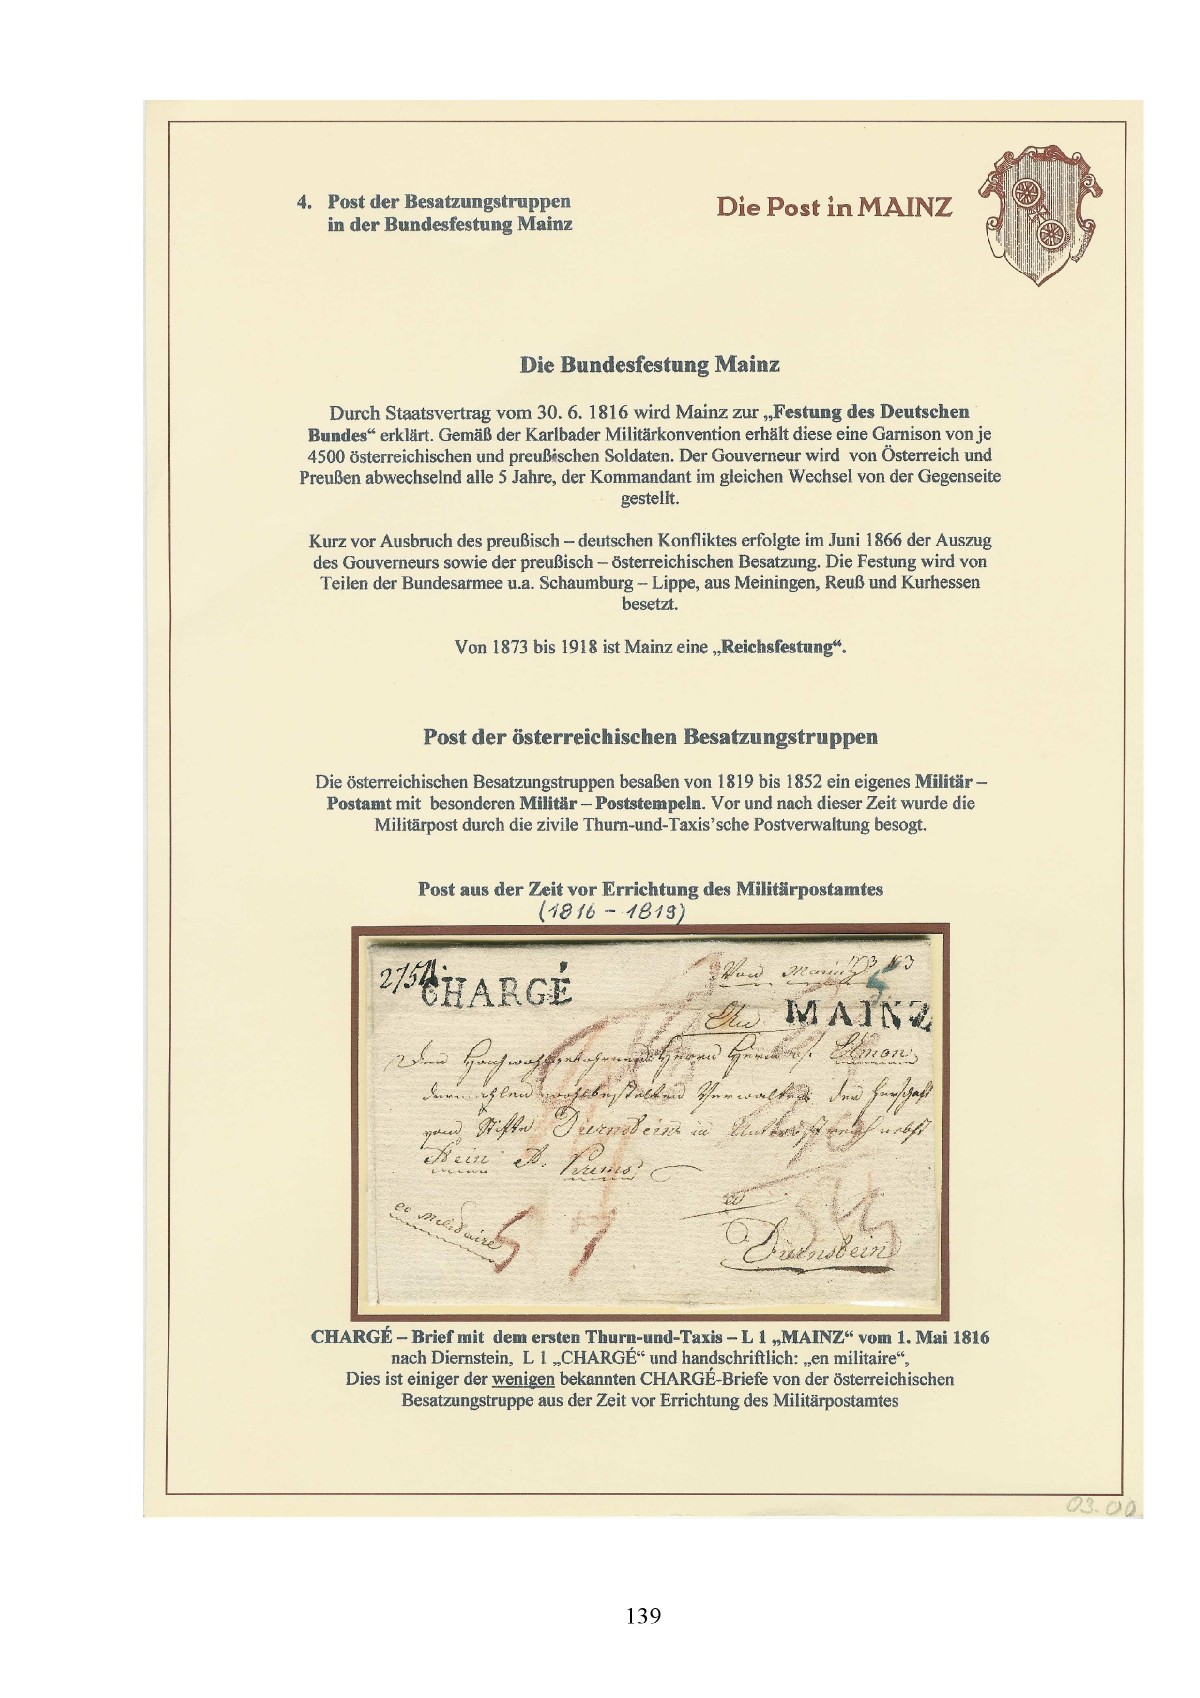 4. Post der Besatzungstruppen
in der Bundesfestung Mainz
Die Post in MAINZ
Die Bundesfestung Mainz
Durch Staatsvertrag vom 30. 6. 1816 wird Mainz zur „Festung des Deutschen
Bundes“ erklärt. Gemäß der Karlbader Militärkonvention erhält diese eine Garnison von je
4500 österreichischen und preußischen Soldaten. Der Gouverneur wird von Österreich und
Preußen abwechselnd alle 5 Jahre, der Kommandant im gleichen Wechsel von der Gegenseite
gestellt.
Kurz vor Ausbruch des preußisch – deutschen Konfliktes erfolgte im Juni 1866 der Auszug
des Gouverneurs sowie der preußisch – österreichischen Besatzung. Die Festung wird von
Teilen der Bundesarmee u.a. Schaumburg – Lippe, aus Meiningen, Reuß und Kurhessen
besetzt.
Von 1873 bis 1918 ist Mainz eine „Reichsfestung“.
Post der österreichischen Besatzungstruppen
Die österreichischen Besatzungstruppen besaßen von 1819 bis 1852 ein eigenes Militär –
Postamt mit besonderen Militär – Poststempeln. Vor und nach dieser Zeit wurde die
Militärpost durch die zivile Thurn-und-Taxis’sche Postverwaltung besogt.
Post aus der Zeit vor Errichtung des Militärpostamtes
(1816 – 1819)
CHARGÉ
Von Mainz
MAINZ
Herrn Herrn
wohlbestellten Verwalter der Herschaft
vom Stifte Diernstein in
Stein Krems
en Militaire
Diernstein
CHARGÉ – Brief mit dem ersten Thurn-und-Taxis – L 1 „MAINZ“ vom 1. Mai 1816
nach Diernstein, L 1 „CHARGÉ“ und handschriftlich: „en militaire“,
Dies ist einiger der wenigen bekannten CHARGÉ-Briefe von der österreichischen
Besatzungstruppe aus der Zeit vor Errichtung des Militärpostamtes
03.00
139